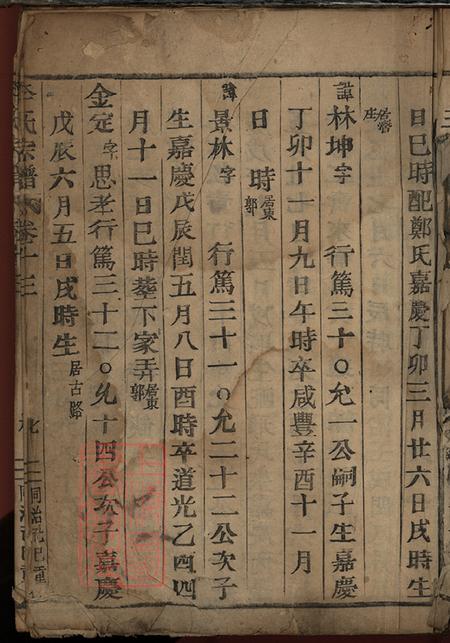 日巳時配鄭氏嘉慶丁卯三月廿六日戌時生
居濟庄
諱林坤字 行篤三十〇允一公嗣子生嘉慶
丁卯十七月九日午時卒咸豐辛酉十一月
日 時居東郭
諱景林字 行篤三十一〇允二十二公次子
生嘉慶戊辰閏五月八日酉時卒道光乙酉四
月十一日巳時葬下家弄居東郭
金定字思孝行篤三十二〇允十四公次子嘉慶
戊辰六月五日戌時生居古路
氏宗譜 卷十三
同治己巳重